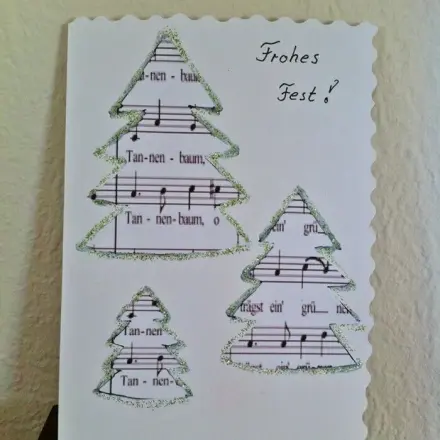 Frohes
Fest!
-nen - bau
Tan-nen - baum,
Tan - nen-baum, o
ein' grü
trägst ein' grü nen
Tan-nen
Tan - nen-